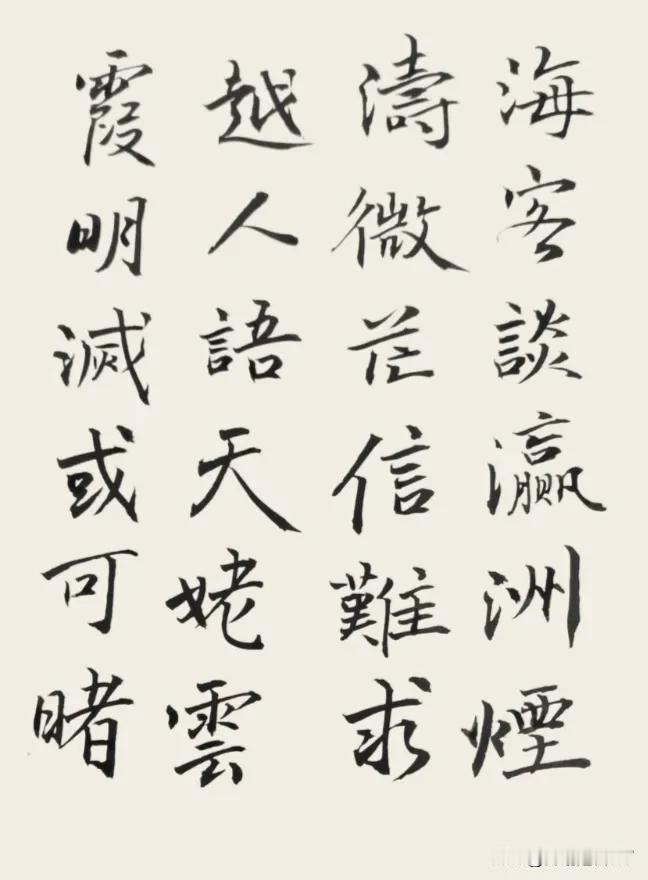 海客談瀛洲煙
濤微茫信難求
越人語天姥雲
霞明滅或可睹